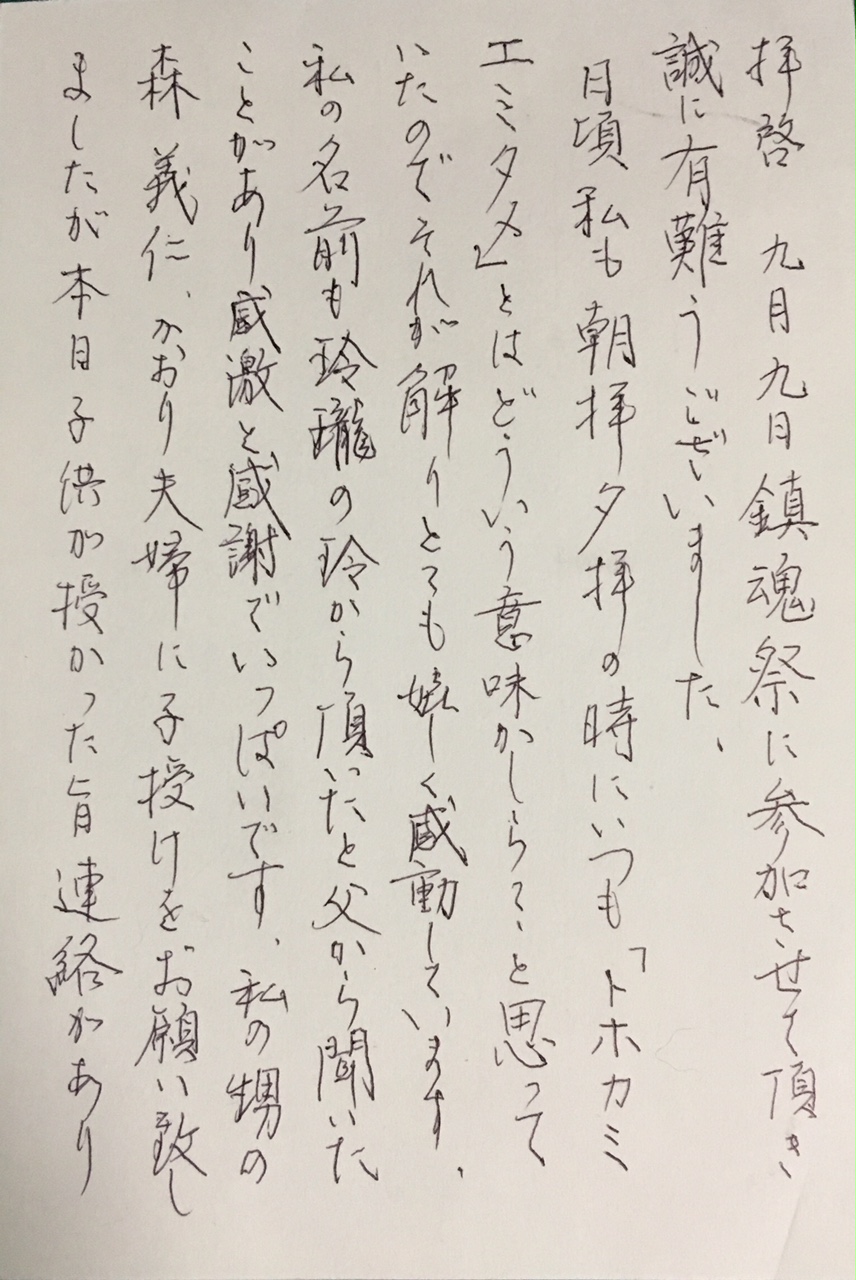 拝啓　九月九日鎮魂祭に参加させて頂き
誠に有難うございました、
日頃私も朝拝夕拝の時にいつも「トホカミ
エミタメ」とはどういう意味かしらて、と思って
いたのでそれが解りとても嬉しく感動しています、
私の名前も玲瓏の玲から頂いたと父から聞いた
ことがあり感激と感謝でいっぱいです、私の甥の
森義仁、かおり夫婦に子授けをお願い致し
ましたが本日子供が授かった旨連絡があり